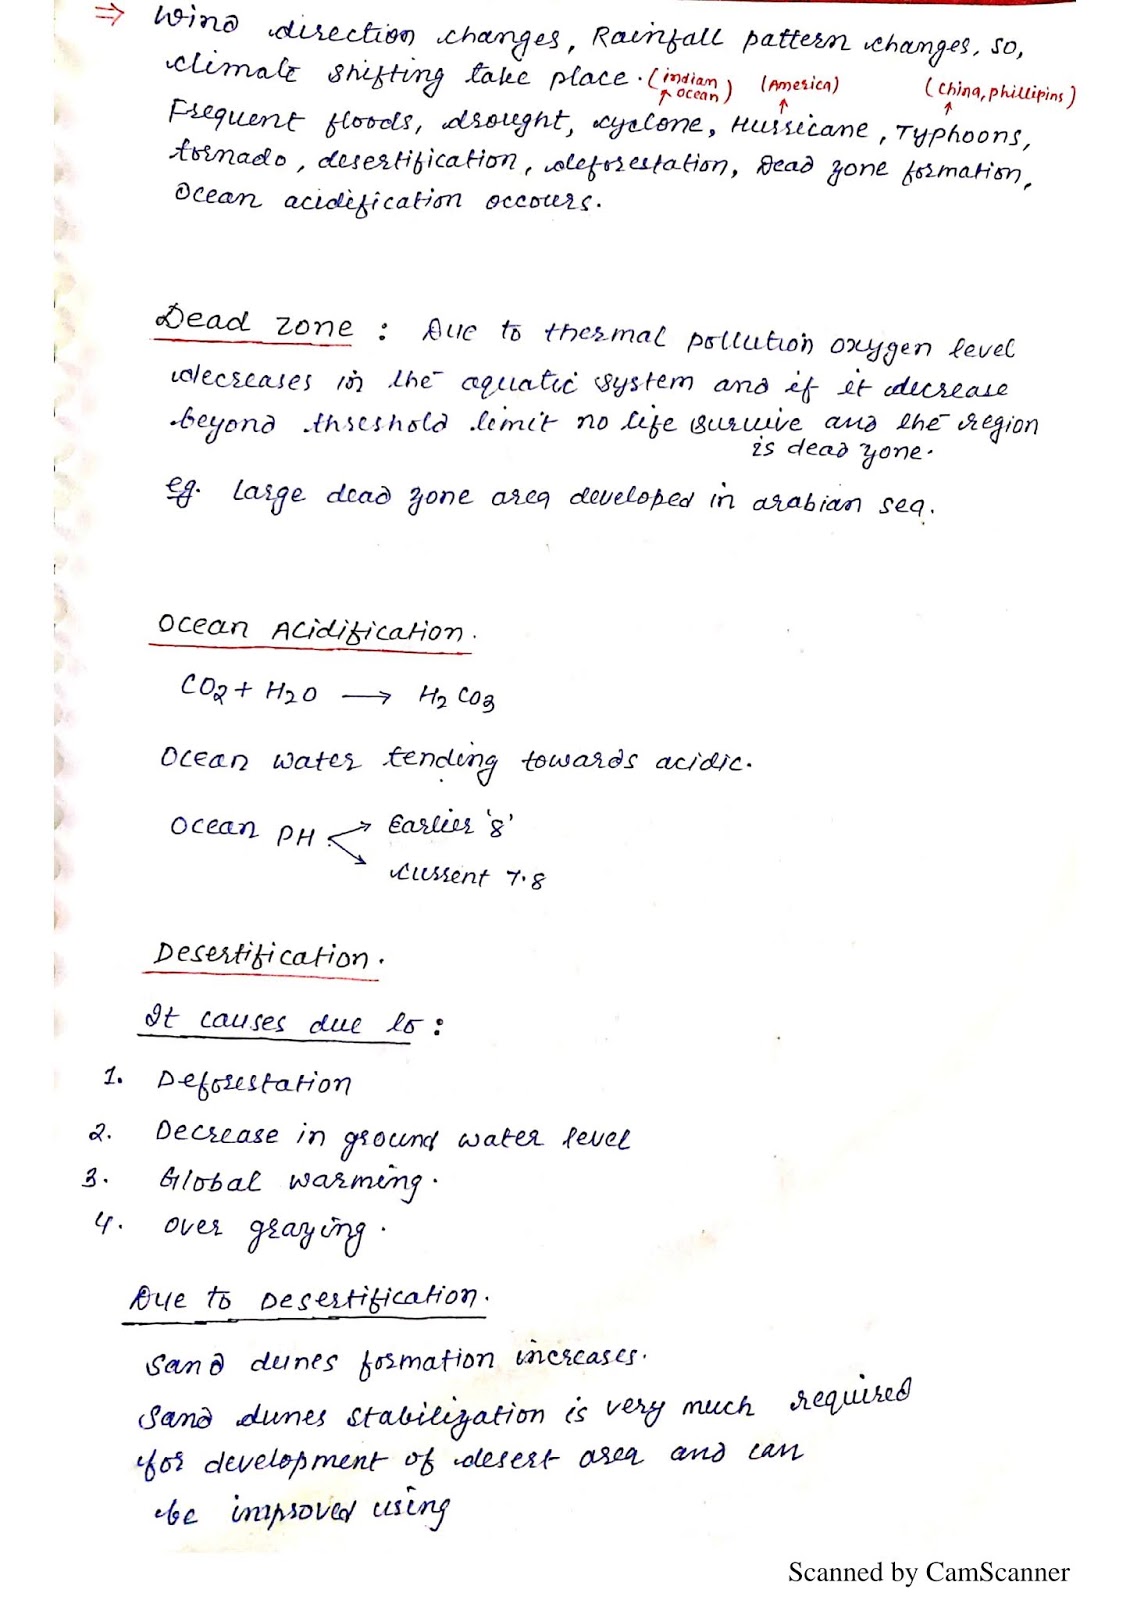 ⇒ Wind direction changes, Rainfall pattern changes, so,
climate shifting take place. (indian ocean) (America) (china, phillipins)
Frequent floods, drought, cyclone, Hurricane, Typhoons,
tornado, desertification, deforestation, Dead zone formation,
Ocean acidification occours.
Dead zone : Due to thermal pollution oxygen level
decreases in the aquatic system and if it decrease
beyond threshold limit no life survive and the region
is dead zone.
eg. Large dead zone area developed in arabian sea.
Ocean Acidification.
CO2 + H2O → H2CO3
Ocean water tending towards acidic.
Ocean PH Earlier '8'
Current 7.8
Desertification.
It causes due to :
1. Deforestation
2. Decrease in ground water level
3. Global warming.
4. Over grazing.
Due to Desertification.
Sand dunes formation increases.
Sand dunes stabilization is very much required
for development of desert area and can
be improved using
Scanned by CamScanner